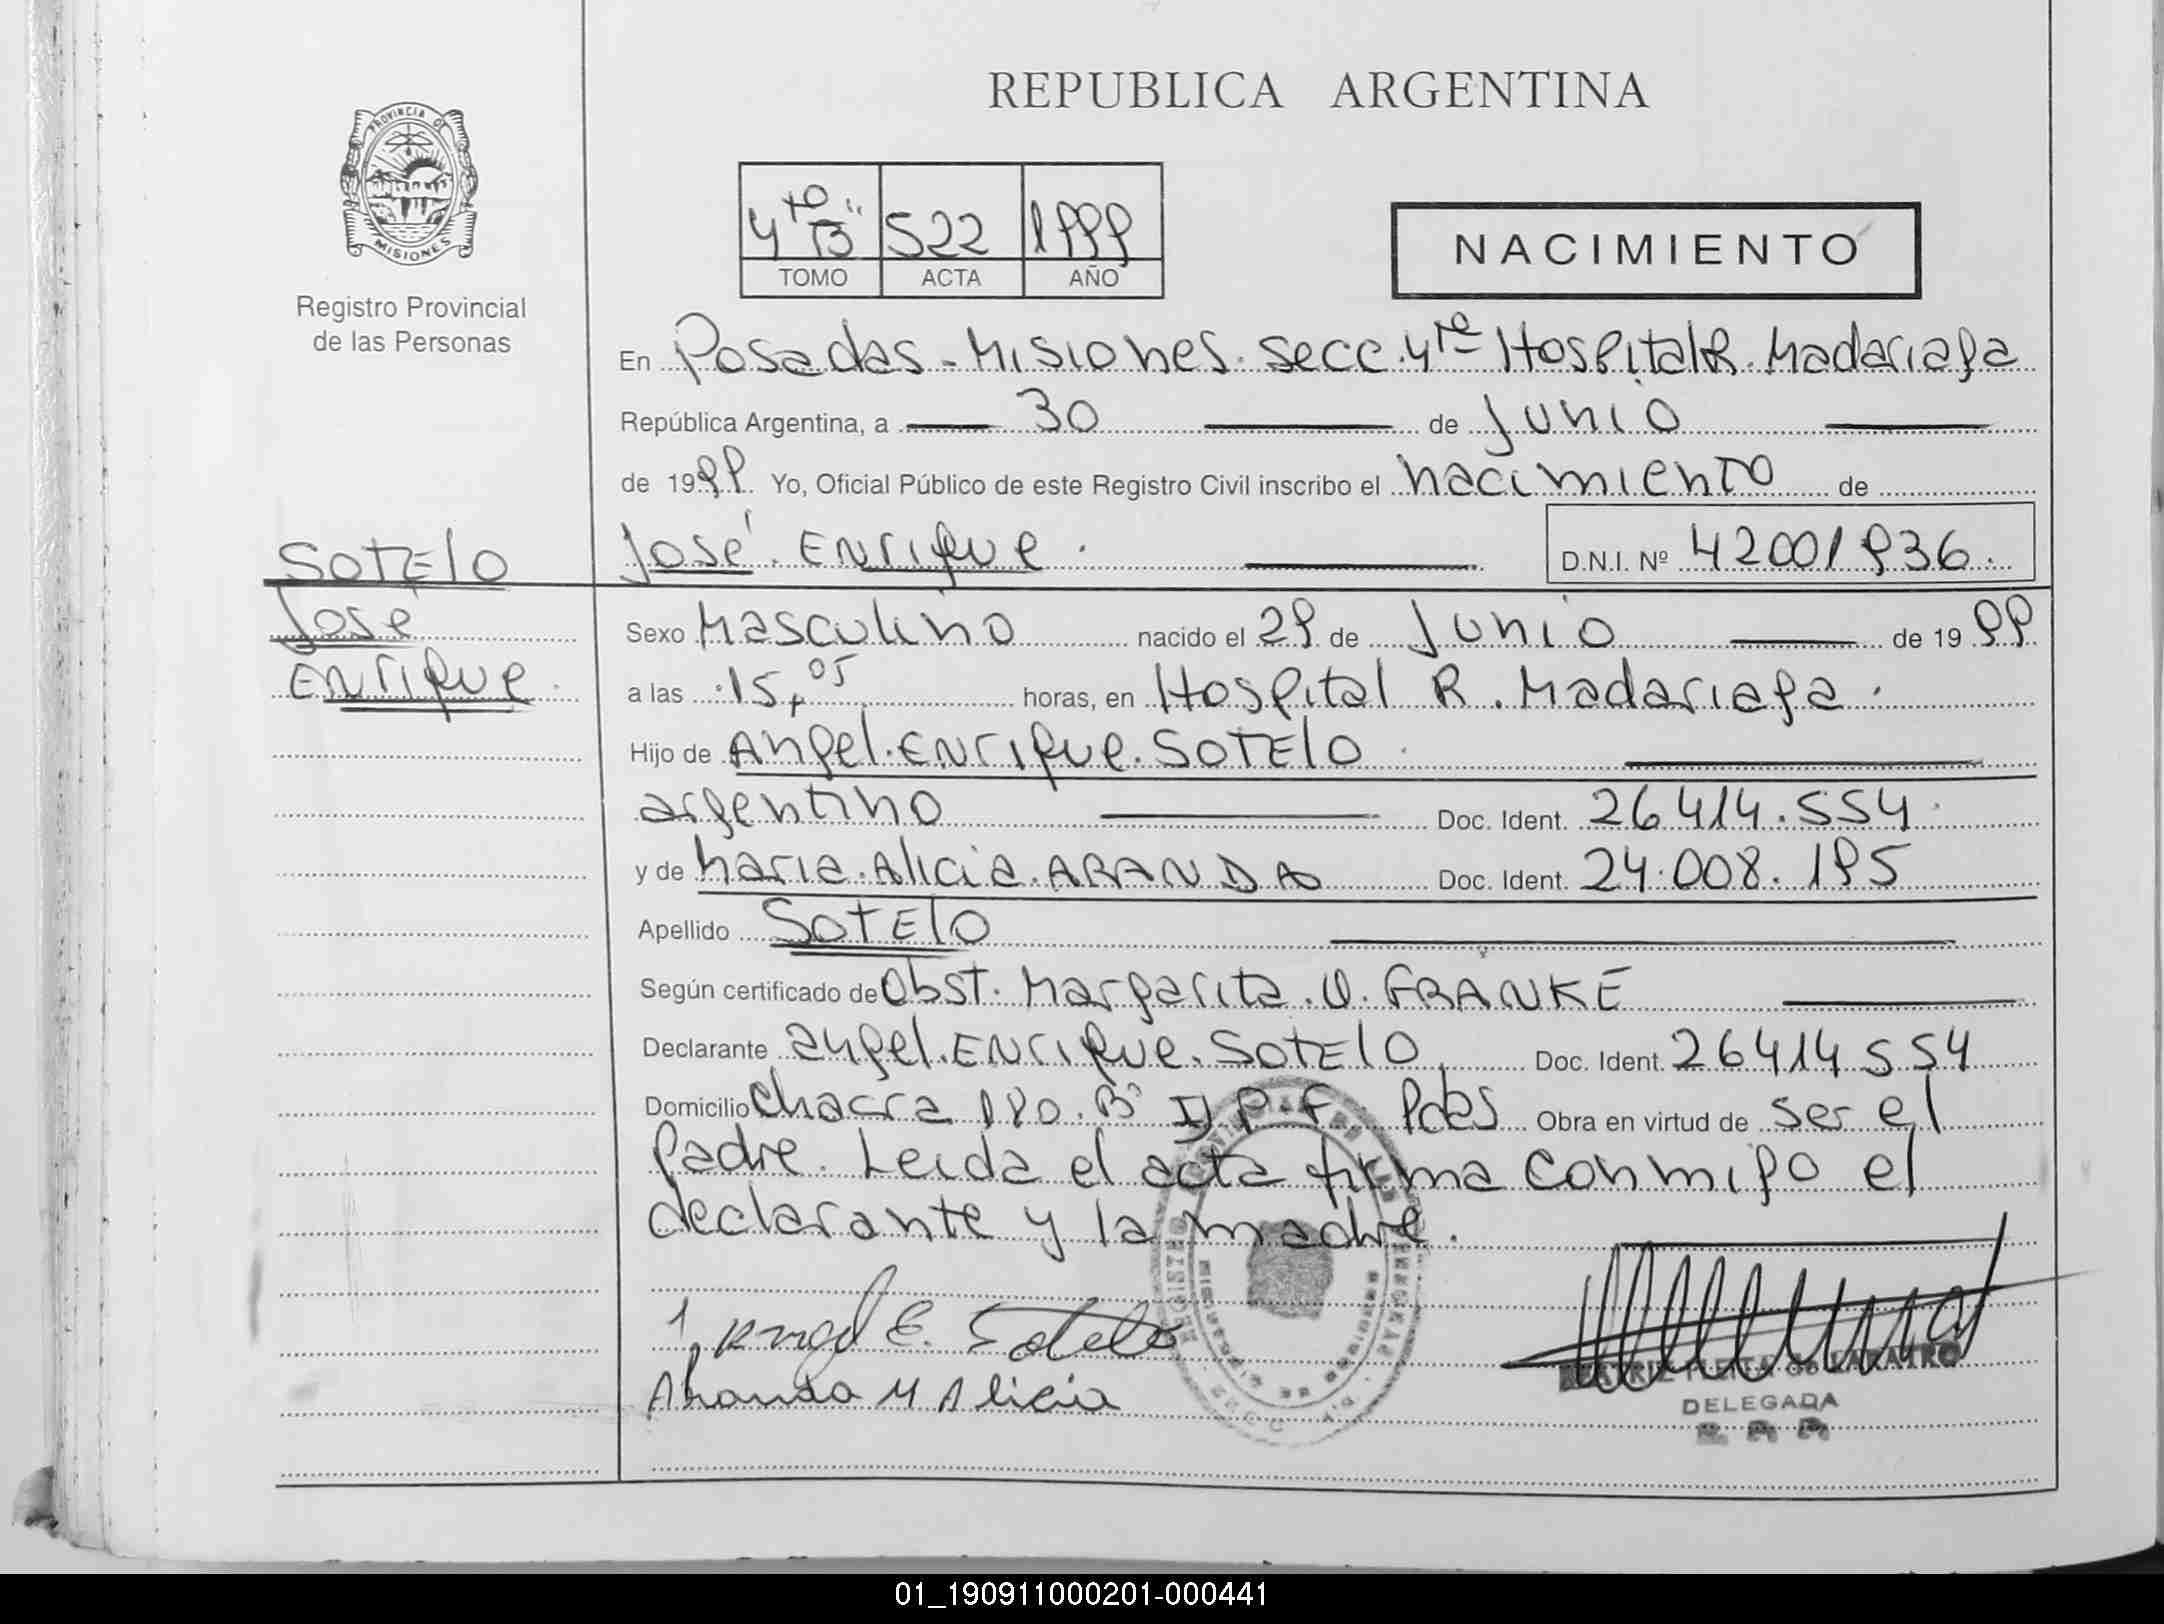 REPUBLICA ARGENTINA
PROVINCIA DE
MISIONES
Registro Provincial
de las Personas
4to "B"
522
1999
TOMO
ACTA
AÑO
NACIMIENTO
En Posadas - Misiones. secc. 4ta Hospital R. Madariaga
República Argentina, a 30 de Junio
de 1999. Yo, Oficial Público de este Registro Civil inscribo el nacimiento de
SOTELO
José
Enrique
José Enrique.
D.N.I. Nº 42001936.
Sexo Masculino nacido el 29 de Junio de 1999
a las 15,05 horas, en Hospital R. Madariaga.
Hijo de Angel. Enrique. SOTELO.
argentino Doc. Ident. 26414.554.
y de Maria. Alicia. ARANDA Doc. Ident. 24.008.195
Apellido SOTELO
Según certificado de Obst. Margarita. O. FRANKE
Declarante angel. Enrique. SOTELO Doc. Ident. 26414554
Domicilio Chacra 190. Bº Pdas Obra en virtud de ser el
padre. Leida el acta firma conmigo el
declarante y la madre.
Angel E. Sotelo
Aranda M Alicia
DELEGADA
01_190911000201-000441